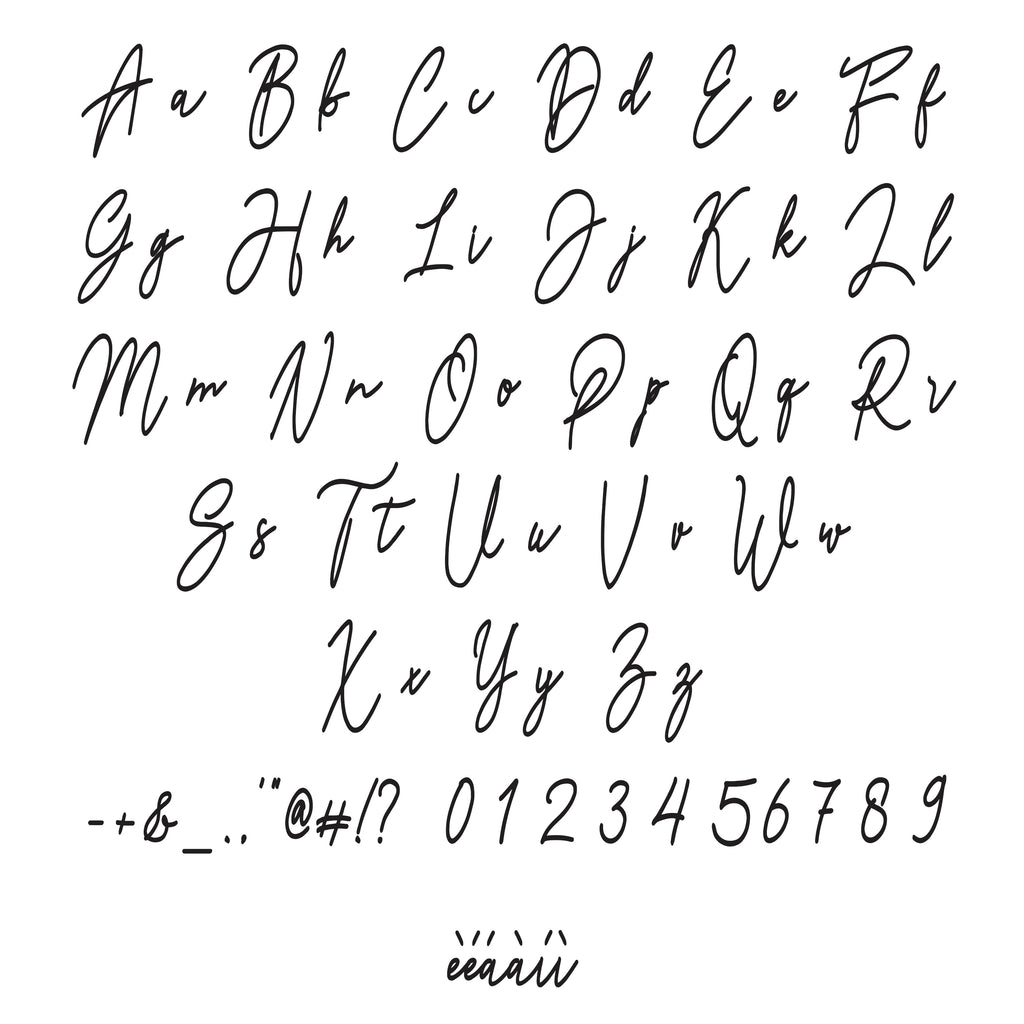 Aa Bb Cc Dd Ee Ff
Gg Hh Ii Jj Kk Ll
Mm Nn Oo Pp Qq Rr
Ss Tt Uu Vv Ww
Xx Yy Zz
-+&_..'"@#!? 0123456789
èéáàíì